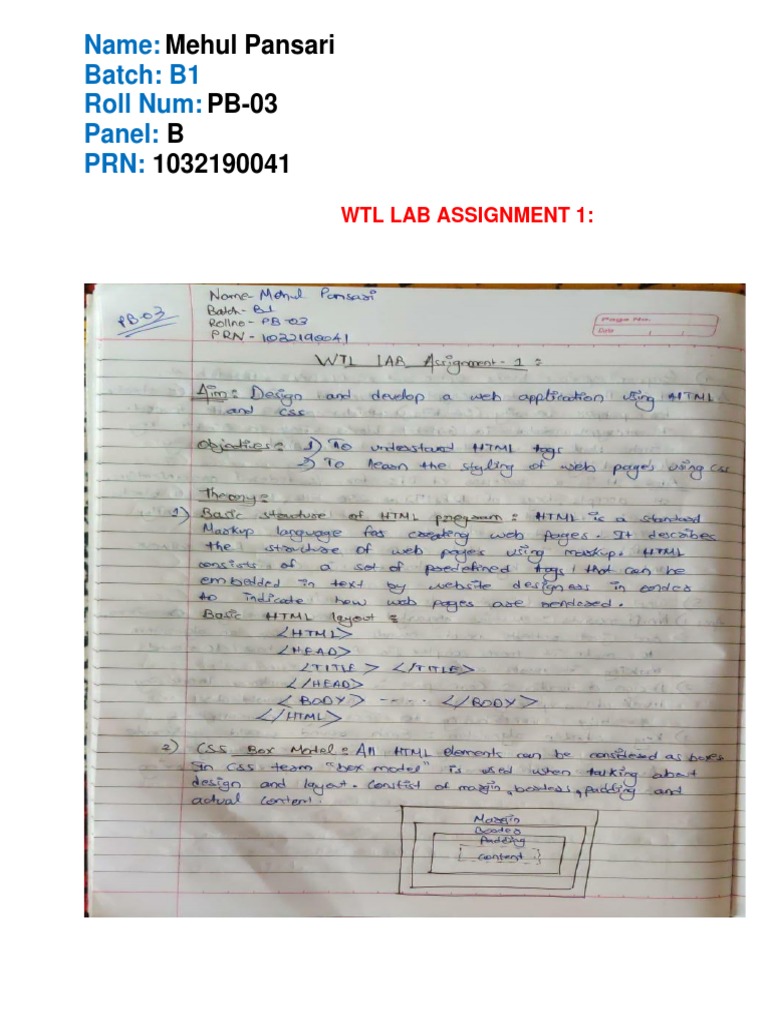 Name: Mehul Pansari
Batch: B1
Roll Num: PB-03
Panel: B
PRN: 1032190041
WTL LAB ASSIGNMENT 1:
PB-03
Name- Mehul Pansari
Batch- B1
Rollno- PB-03
PRN - 1032190041
Page No.
Date
WTL LAB Assignment - 1 :
Aim: Design and develop a web application using HTML
and css
Objectives: 1) To understand HTML tags
2) To learn the styling of web pages using css
Theory:
1) Basic structure of HTML program: HTML is a standard
Markup language for creating web pages. It describes
the structure of web pages using markup. HTML
consists of a set of predefined tags that can be
embedded in text by website designers in order
to indicate how web pages are rendered.
Basic HTML layout:
<HTML>
<HEAD>
<TITLE> </TITLE>
</HEAD>
<BODY> ---- </BODY>
</HTML>
2) CSS Box Model: All HTML elements can be considered as boxes
In CSS team "box model" is used when talking about
design and layout. Constist of margin, borders, padding and
actual content.
Margin
Border
Padding
content